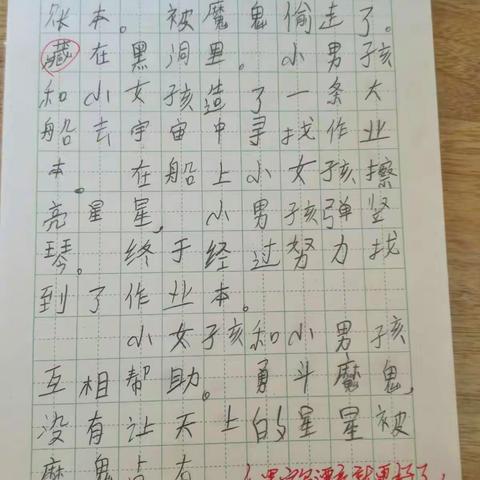 本。被魔鬼偷走了。
藏在黑洞里。小男孩
和小女孩造了一条大
船去宇宙中寻找作业
本。在船上小女孩擦
亮星星,小男孩弹竖
琴。终于经过努力找
到了作业本。
小女孩和小男孩
互相帮助。勇斗魔鬼,
没有让天上的星星被
魔鬼占有